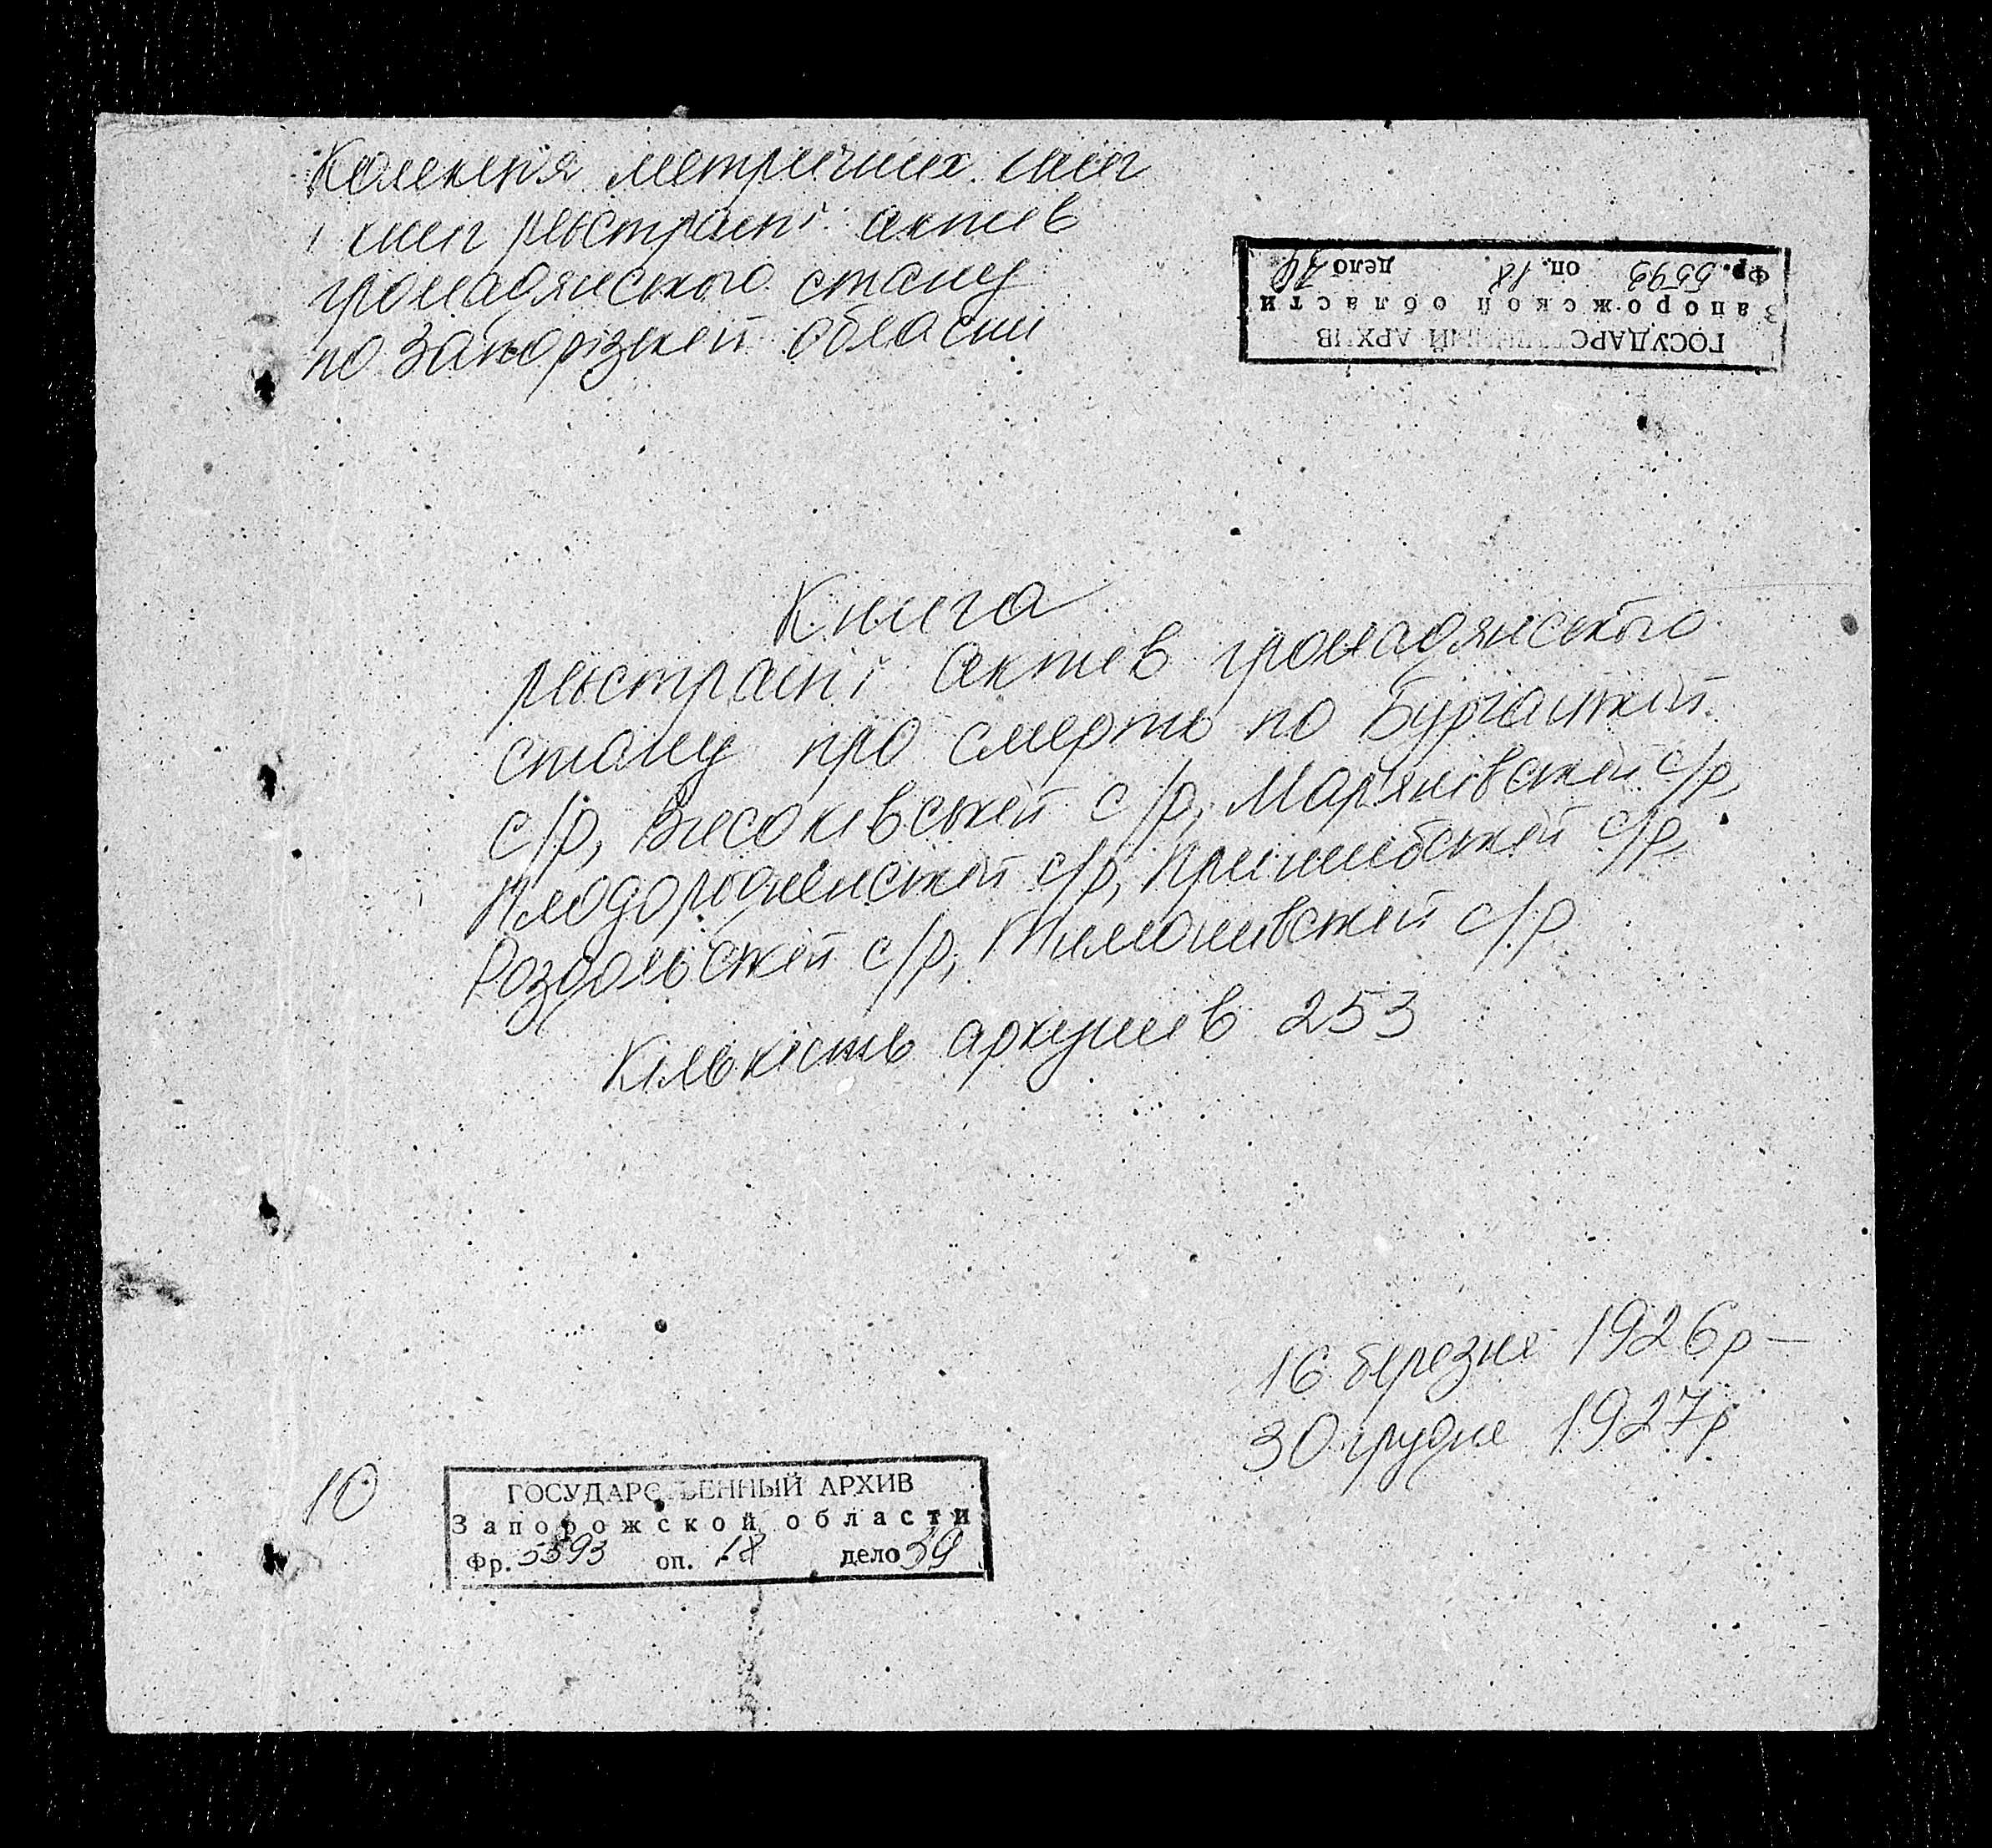 Колекція метричних книг
і книг реєстрації актів
громадянського стану
по Запорізькій області
ГОСУДАРСТВЕННЫЙ АРХИВ
Запорожской области
Фр. 5593 оп. 18 дело
Книга
реєстрації актів громадянського
стану про смерть по
с/р, Високівській с/р, Мар'янівській с/р,
Плодородненській с/р, Пришибській с/р,
Роздольській с/р, Тимошівській с/р
Кількість аркушів 253
16 березня 1926р –
30 грудня 1927р
10
ГОСУДАРСТВЕННЫЙ АРХИВ
Запорожской области
Фр. 5593 оп. 18 дело 39